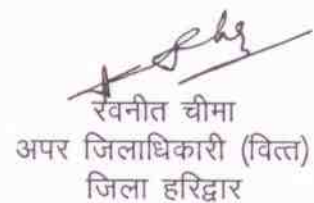 रवनीत चीमा
अपर जिलाधिकारी (वित्त)
जिला हरिद्वार